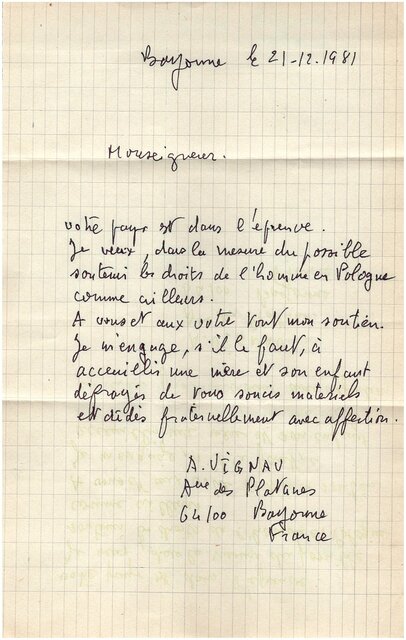 Bayonne le 21-12.1981
Monseigneur.
votre pays est dans l'épreuve.
Je veux, dans la mesure du possible
soutenir les droits de l'homme en Pologne
comme ailleurs.
A vous et aux votre tout mon soutien.
Je m'engage, s'il le faut, à
acceuillir une mère et son enfant
défrayés de tous soucis matériels
et fraternellement avec affection.
A. VIGNAU
Aue des Platanes
64100 Bayonne
France